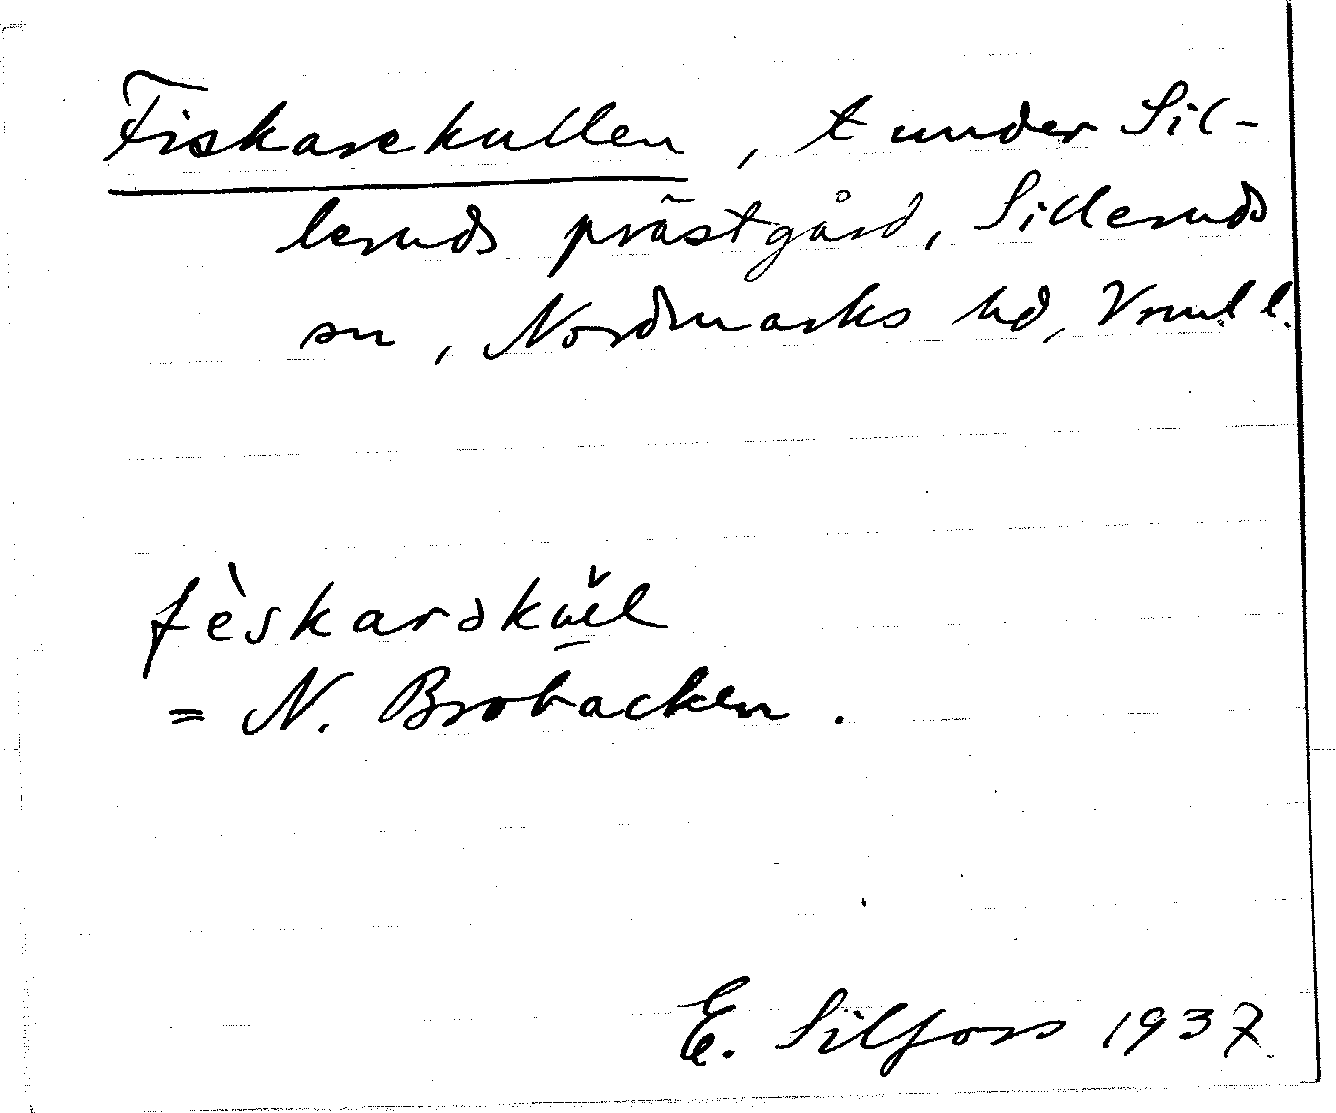 Fiskarekullen, t under Sil-
leruds prästgård, Silleruds
sn, Nordmarks hd, Vrml l.
= N. Brobacken.
E. Silfors 1937